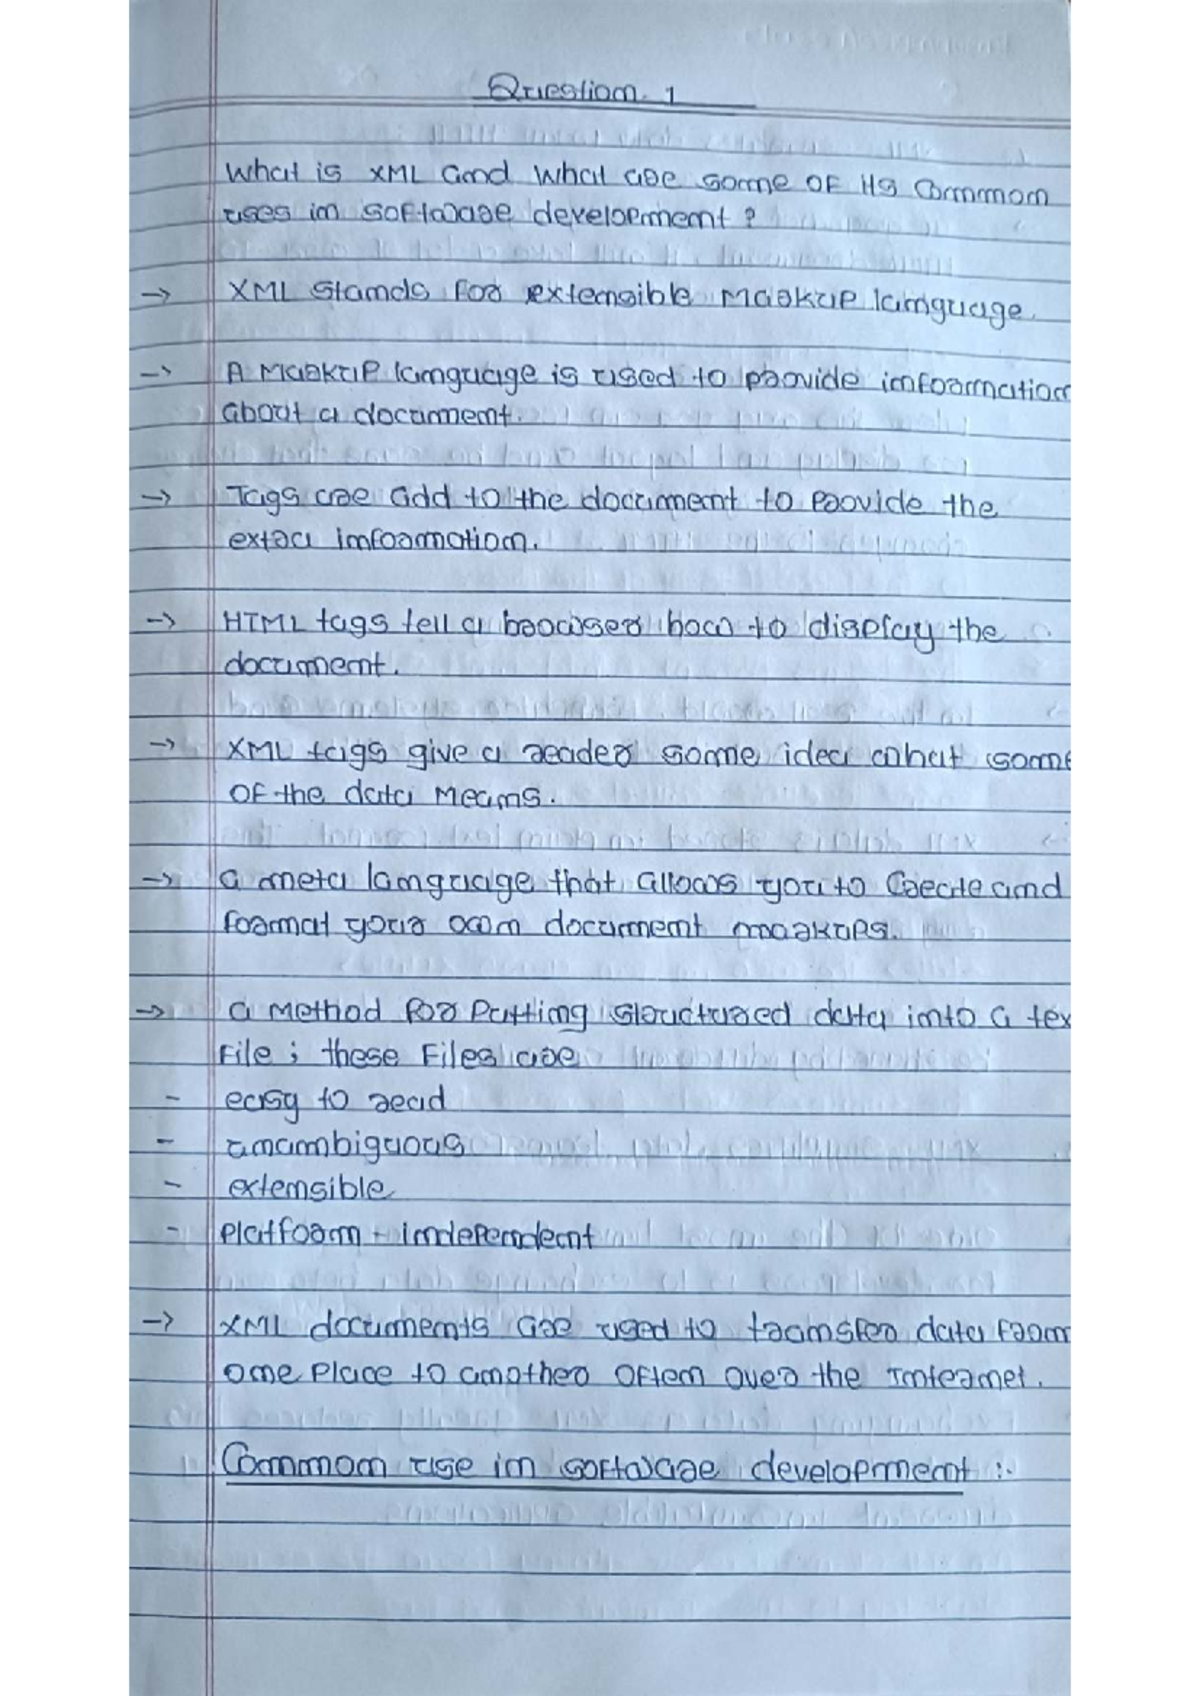 Question. 1
What is XML and what are some of its common
uses in software development?
→ XML stands for extensible Markup language.
→ A Markup language is used to provide information
about a document.
→ Tags are add to the document to provide the
extra information.
→ HTML tags tell a browser how to display the
document.
→ XML tags give a reader some idea what some
of the data means.
→ a meta language that allows you to Create and
format your own document markups.
→ a method for Putting structured data into a tex
file ; these files are
- easy to read
- unambiguous
- extensible
- Platform - independent
→ XML documents are used to transfer data from
one place to another often over the Internet.
Common use in software development :-